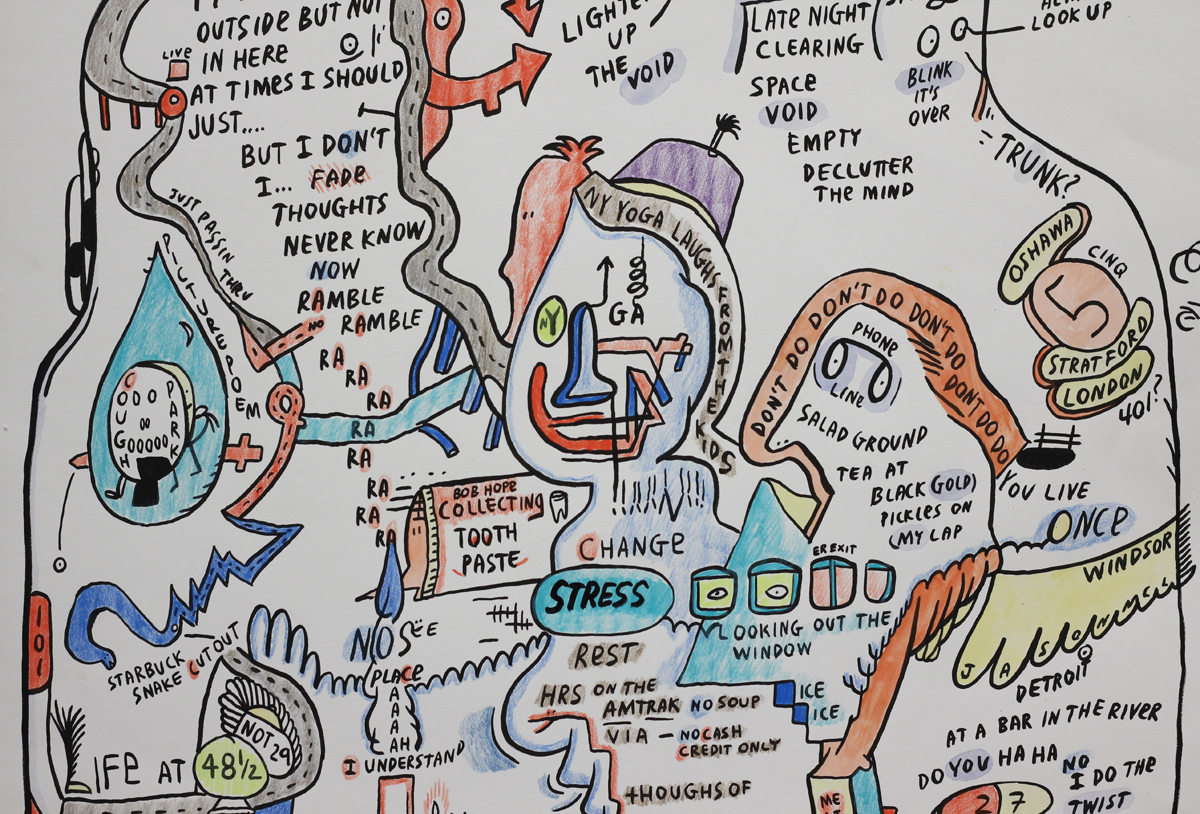 OUTSIDE BUT NOT
IN HERE
LIVE
AT TIMES I SHOULD
JUST....
BUT I DON'T
I... FADE
THOUGHTS
NEVER KNOW
NOW
RAMBLE
RAMBLE
RA
RA
RA
RA
RA
RA
RA
RA
JUST PASSIN THRU
NO
PICTUREPOEM
COUGH
PARK
STARBUCK
SNAKE CUTOUT
101
NOT 29
LIFE AT 48 1/2
LIGHTEN
UP
THE VOID
NY YOGA LAUGHS FROM THE KIDS
NY
GA
BOB HOPE
COLLECTING
TOOTH
PASTE
CHANGE
STRESS
REST
NOSEE
PLACE
A
A
A
A
AH
I UNDERSTAND
HRS ON THE
AMTRAK NO SOUP
VIA - NO CASH
CREDIT ONLY
THOUGHS OF
LATE NIGHT
CLEARING
SPACE
VOID
EMPTY
DECLUTTER
THE MIND
LOOK UP
BLINK
IT'S
OVER
TRUNK?
OSHAWA
CINQ
5
STRATFORD
LONDON
401?
DON'T DO DON'T DO DON'T DO DONT DO DO
PHONE
LINE
SALAD GROUND
TEA AT
BLACK GOLD)
PICKLES ON
(MY LAP
YOU LIVE
ONCE
WINDSOR
ER EXIT
LOOKING OUT THE
WINDOW
ICE
ICE
DETROIT
AT A BAR IN THE RIVER
DO YOU HA HA NO
I DO THE
TWIST
2 7
ME